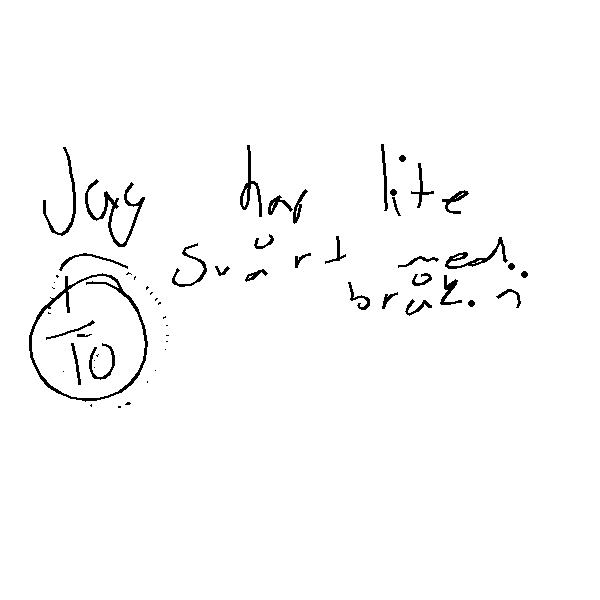 Jag har lite
svårt med
bråk.
1/10